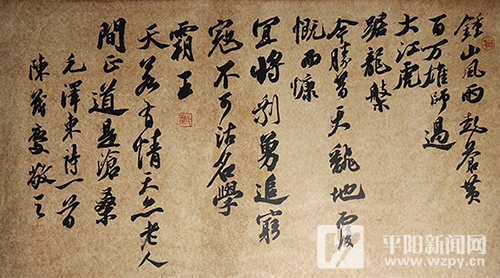 鍾山風雨起蒼黄
百万雄師過
大江虎
踞龍槃
今勝昔天翻地覆
慨而慷
宜將剩勇追窮
寇不可沽名學
霸王
天若有情天亦老人
間正道是滄桑
毛澤東詩一首
陳茂慶敬
平阳新闻网
www.wzpy.cn